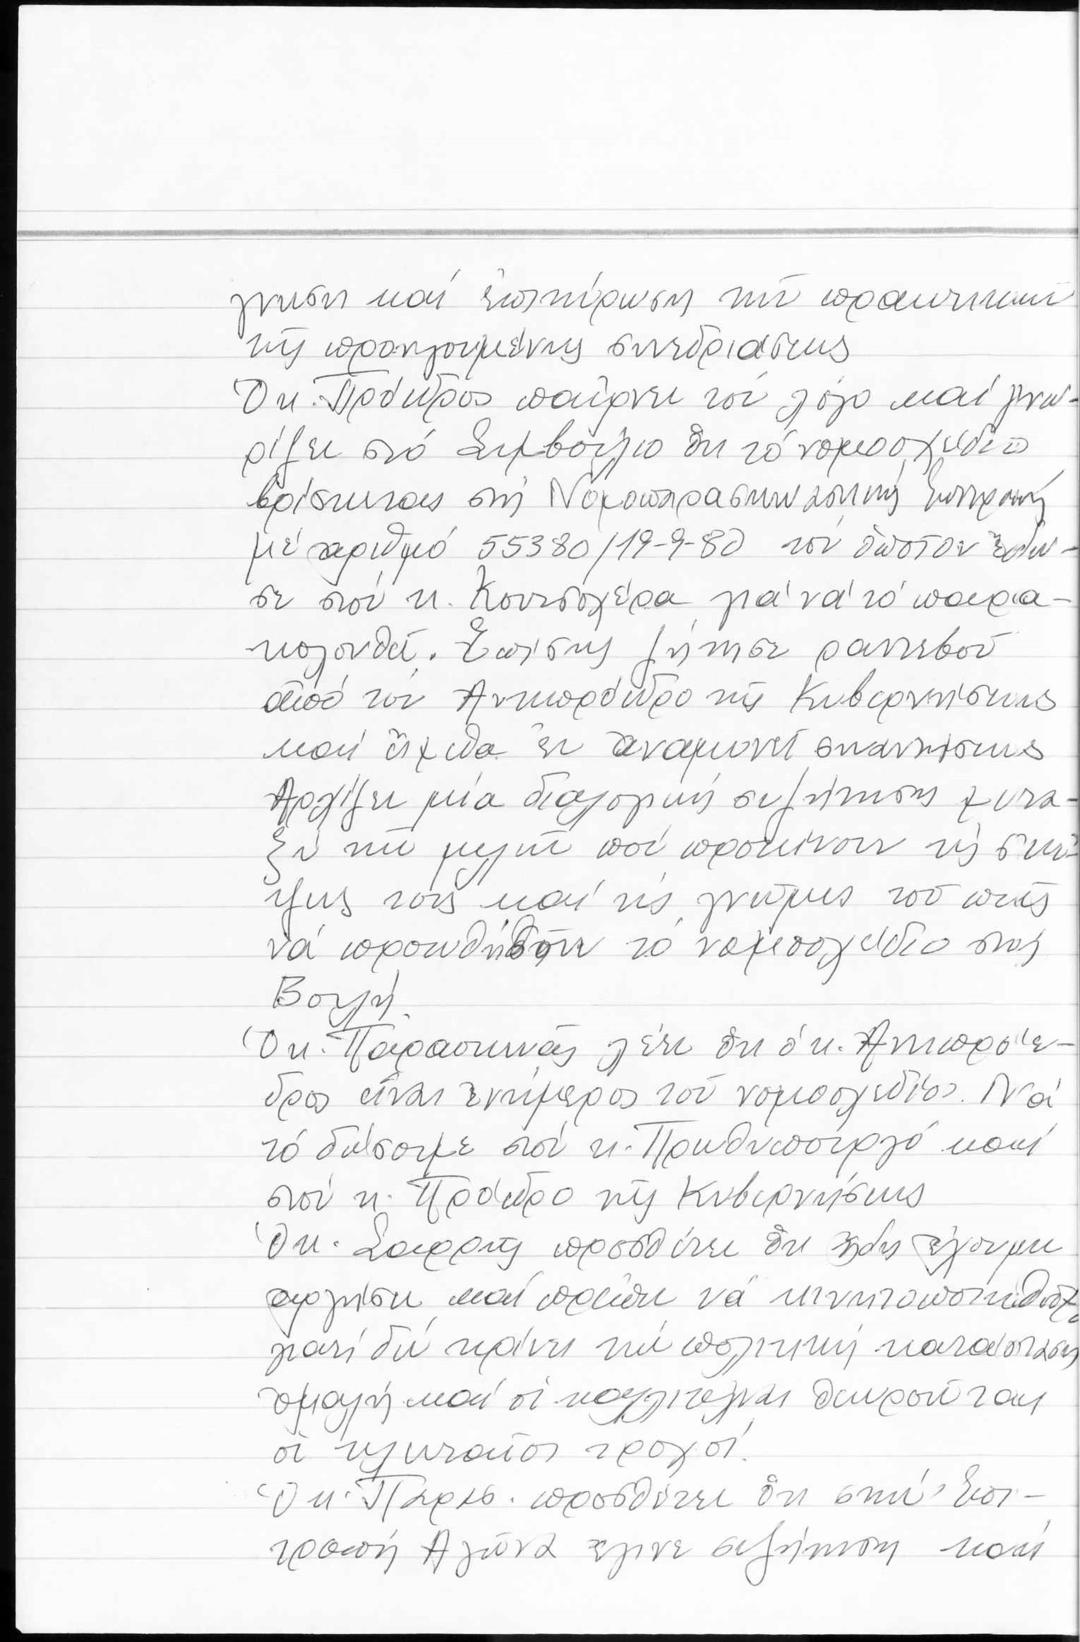 γνωση καί ἐπικύρωση τῶν πρακτικῶν
τῆς προηγουμένης συνεδριάσεως
Ὁ κ. Πρόεδρος παίρνει τόν λόγο καί γνω-
ρίζει στό Συμβούλιο ὅτι τό νομοσχέδιο
βρίσκεται στή Νομοπαρασκευαστική Ἐπιτροπή
μέ ἀριθμό 55380/19-9-80 τόν ὁποῖον ἔδω-
σε στόν κ. Κουτσοχέρα γιά νά τό παρα-
κολουθεῖ. Ἐπίσης ζήτησε ραντεβού
ἀπό τόν Ἀντιπρόεδρο τῆς Κυβερνήσεως
καί εἴμεθα ἐν ἀναμονεῖ ἀπαντήσεως
Ἀρχίζει μία διαλογική συζήτηση μετα-
ξύ τῶν μελῶν πού προτείνουν τίς σκέ-
ψεις τους καί τίς γνῶμες τοῦ πῶς
νά προωθηθῇ τό νομοσχέδιο στή
Βουλή.
Ὁ κ. Παρασκευᾶς λέει ὅτι ὁ κ. Ἀντιπρόε-
δρος εἶναι ἐνήμερος τοῦ νομοσχεδίου. Νά
τό δώσουμε στόν κ. Πρωθυπουργό καί
στόν κ. Πρόεδρο τῆς Κυβερνήσεως
Ὁ κ. προσθέτει ὅτι ἤδη ἔχουμε
ἀργήσει καί πρέπει νά κινητοποιηθοῦμε
γιατί δέν κρίνει τήν πολιτική κατάσταση
ὁμαλή καί οἱ καλλιτέχναι θεωροῦνται
οἱ τελευταῖοι τροχοί.
Ὁ κ. Παρασ. προσθέτει ὅτι στήν Ἐπι-
τροπή Ἀγῶνα ἔγινε συζήτηση καί